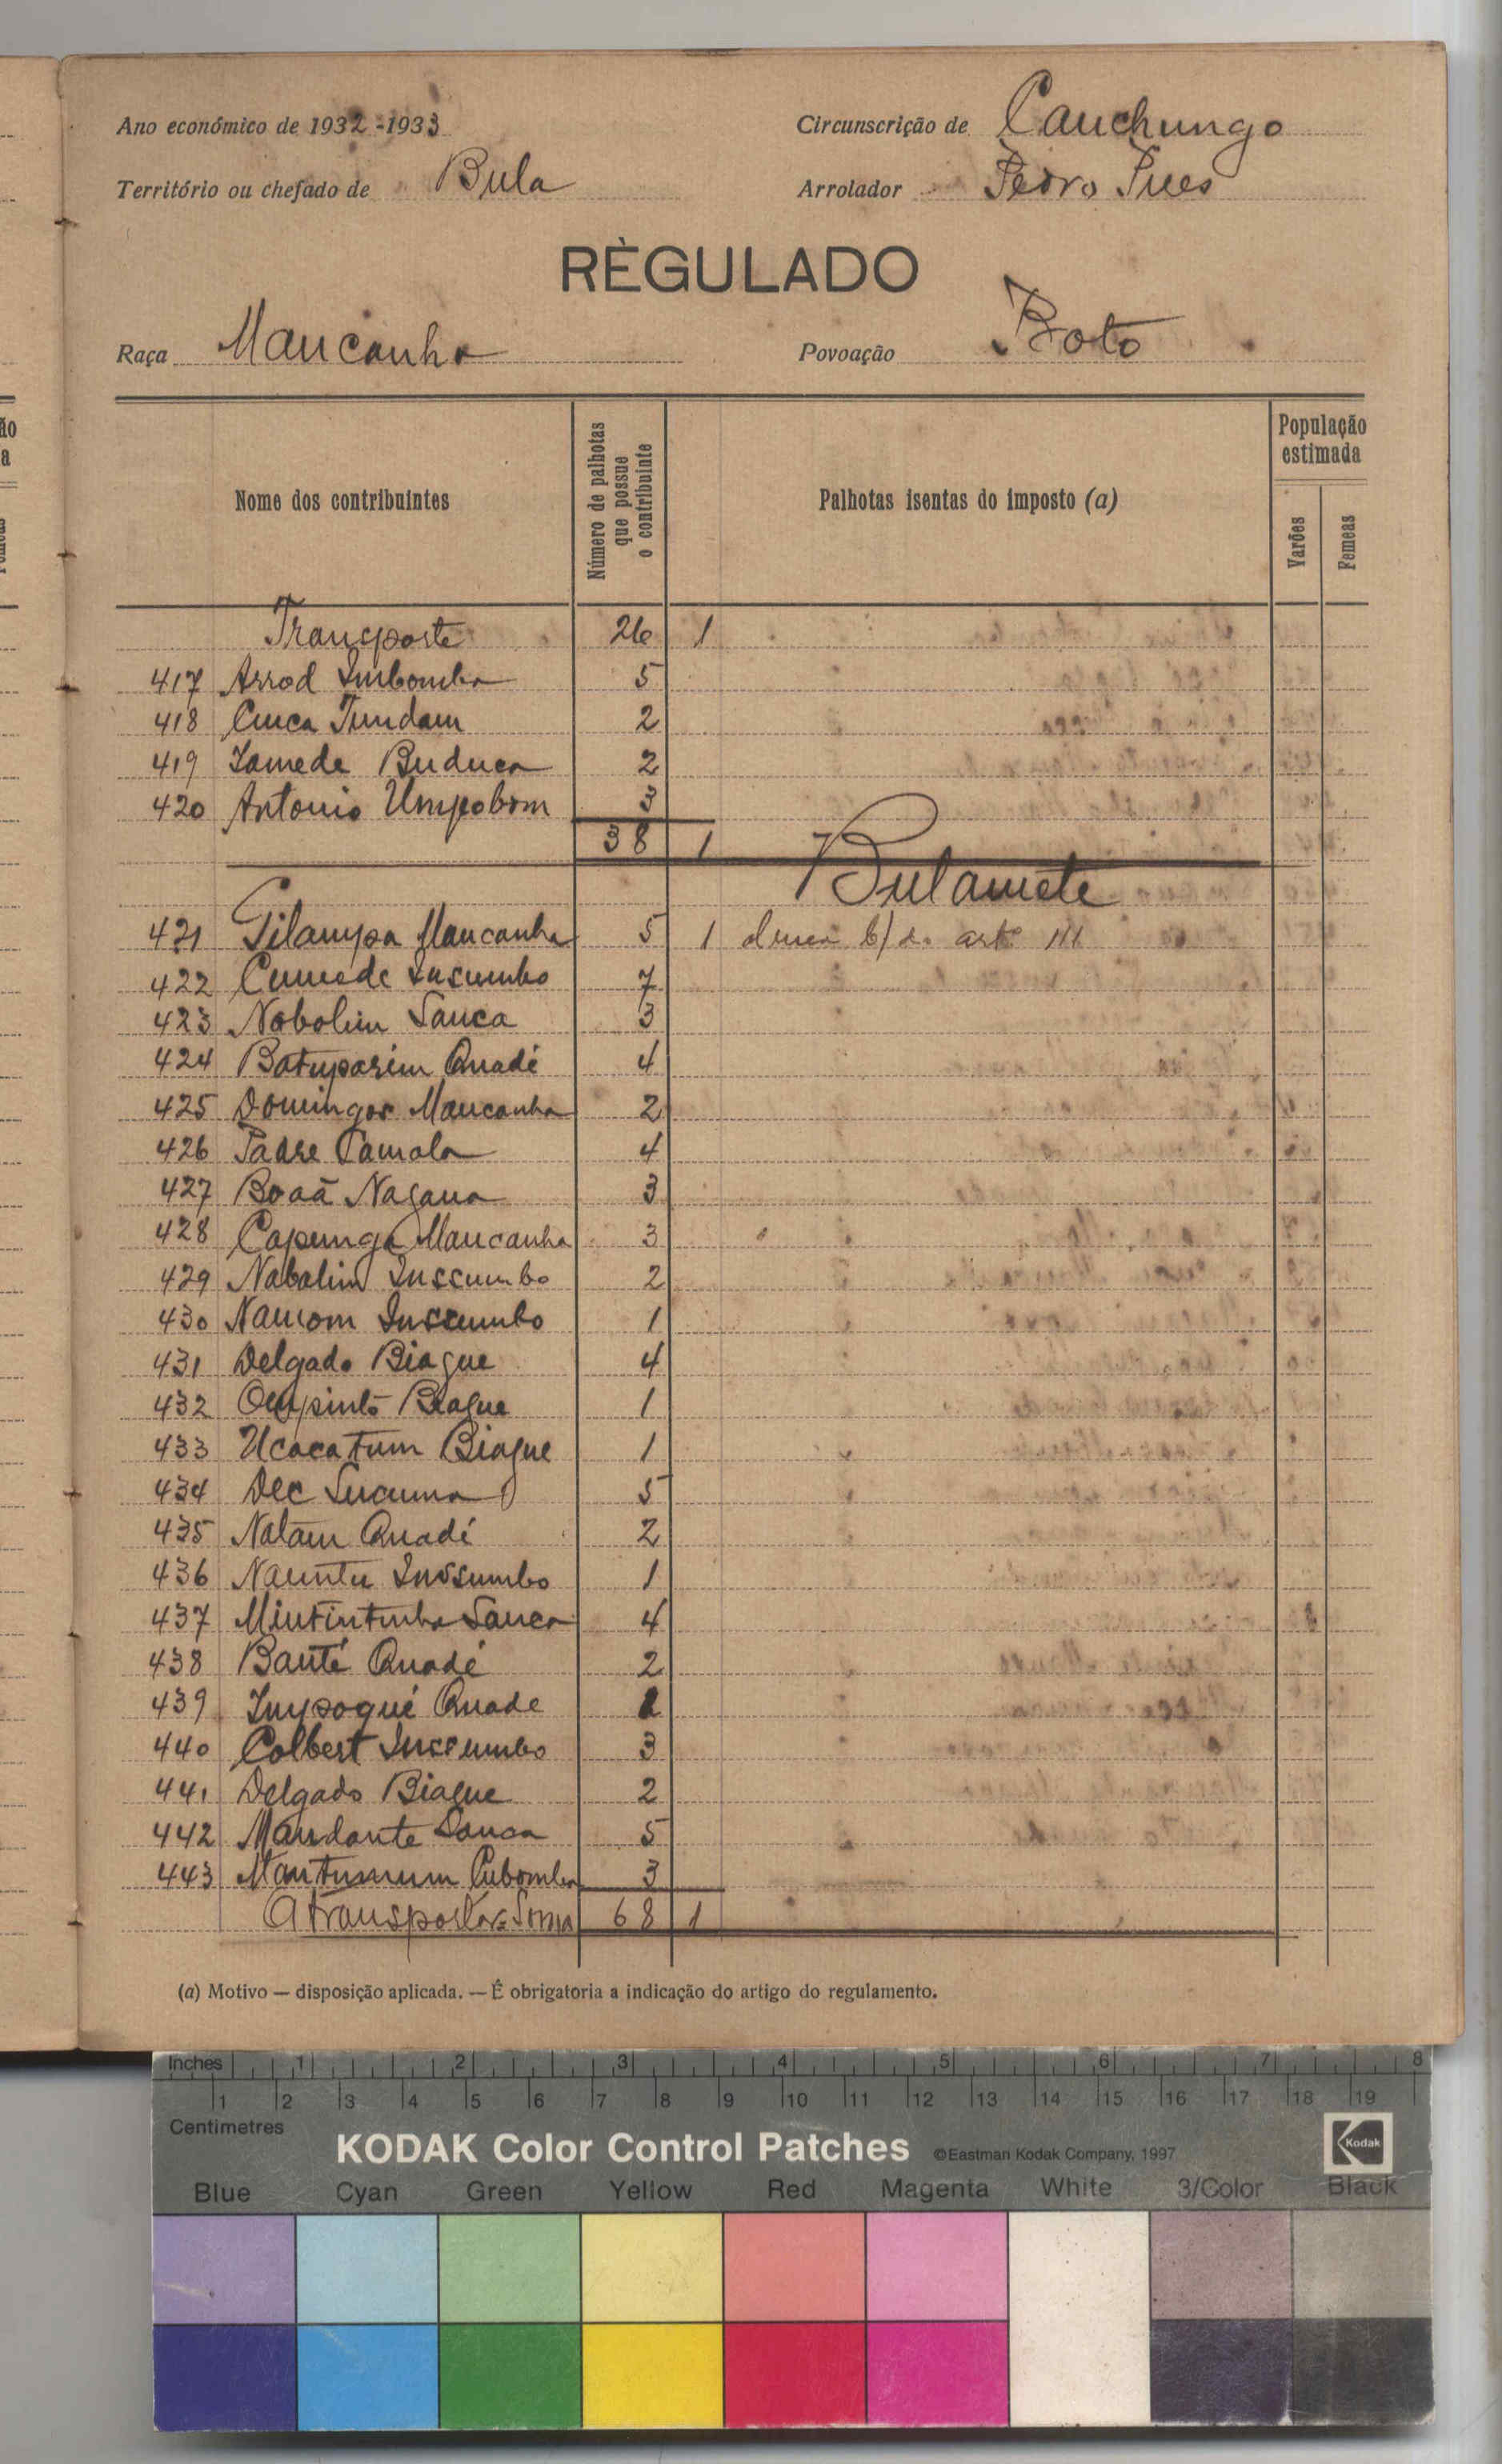 Ano económico de 1932-1933
Circunscrição de Cauchungo
Território ou chefado de Bula
Arrolador Pedro Pires
RÈGULADO
Raça Maucanha
Povoação Boto
Nome dos contribuintes
Número de palhotas que possue o contribuinte
Palhotas isentas do imposto (a)
População estimada
Varões
Femeas
Transporte 26 1
417 Arrod Imbomba 5
418 Cuca Tundam 2
419 Iamede Buduca 2
420 Antonio Umpobom 3
38 1
Bulamete
421 Maucanha 5 1 b) do artº 111
422 Insumbo 7
423 Nobolim Sanca 3
424 Batuparim Quadé 4
425 Domingos Maucanha 2
426 Padre Camala 4
427 Boaã Nagana 3
428 Capunga Maucanha 3
429 Nabalim Inssumbo 2
430 Namom Inssumbo 1
431 Delgado Biague 4
432 Biague 1
433 Ucacatum Biague 1
434 Dec 5
435 Natam Quadé 2
436 Nauntu Inssumbo 1
437 Mintintinha Sanca 4
438 Bauté Quadé 2
439 Impoqué Quade
440 Colbert Inssumbo 3
441 Delgado Biague 2
442 Mandante Sanca 5
443 Mantumum Cubomba 3
A transportar Soma 68 1
(a) Motivo — disposição aplicada. — É obrigatoria a indicação do artigo do regulamento.
Inches 1 2 3 4 5 6 7 8
1 2 3 4 5 6 7 8 9 10 11 12 13 14 15 16 17 18 19
Centimetres
KODAK Color Control Patches ©Eastman Kodak Company, 1997
Kodak
Blue Cyan Green Yellow Red Magenta White 3/Color Black